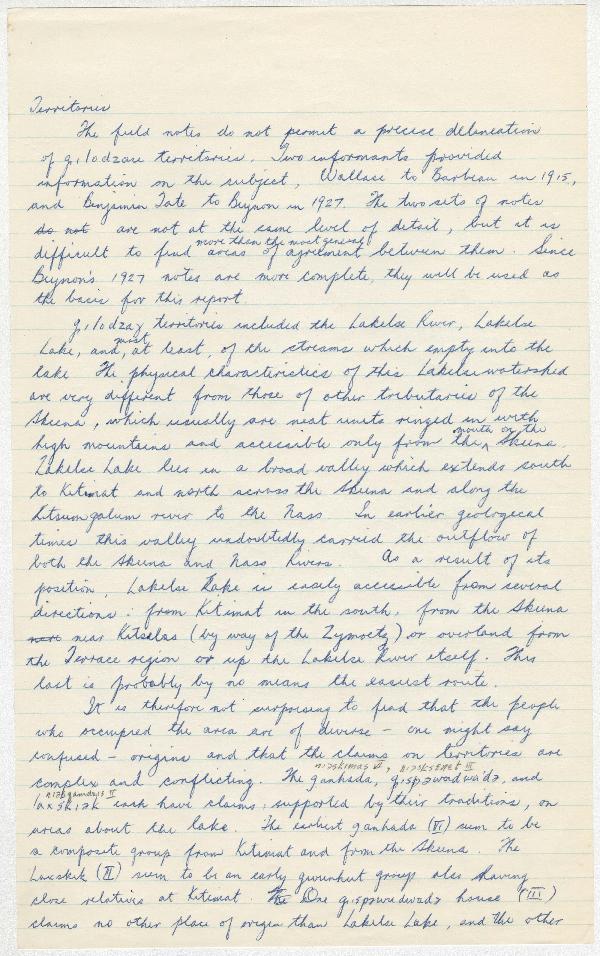 Territories
The field notes do not permit a precise delineation
of g.ilodzau territories. Two informants provided
information on the subject, Wallace to Barbeau in 1915,
and Benjamin Tate to Beynon in 1927. The two sets of notes
do not are not at the same level of detail, but it is
more than the most general
difficult to find areas of agreement between them. Since
Beynon's 1927 notes are more complete, they will be used as
the basis for this report.
g.ilodzaz territories included the Lakelse River, Lakelse
most
Lake, and, at least, of the streams which empty into the
lake. The physical characteristics of this Lakelse watershed
are very different from those of other tributaries of the
Skeena, which usually are neat units ringed in with
mouth or the
high mountains and accessible only from the Skeena
Lakelse Lake lies in a broad valley which extends south
to Kitimat and north across the Skeena and along the
Kitsumgalum river to the Nass. In earlier geological
times this valley undoubtedly carried the outflow of
both the Skeena and Nass Rivers. As a result of its
position, Lakelse Lake is easily accessible from several
directions: from Kitimat in the south, from the Skeena
near Kitselas (by way of the Zymoetz) or overland from
the Terrace region or up the Lakelse River itself. This
last is probably by no means the easiest route.
It is therefore not surprising to find that the people
who occupied the area are of diverse - one might say
confused - origins and that the claims on territories are
complex and conflicting. The ganhada, g.ispəwadwadə, and
each have claims, supported by their traditions, on
areas about the lake. The earliest ganhada (VI) seem to be
a composite group from Kitimat and from the Skeena. The
(II) seem to be an early gwinhut group also having
close relatives at Kitimat. The One g.ispəwadwadə house (III)
claims no other place of origin than Lakelse Lake, and the other